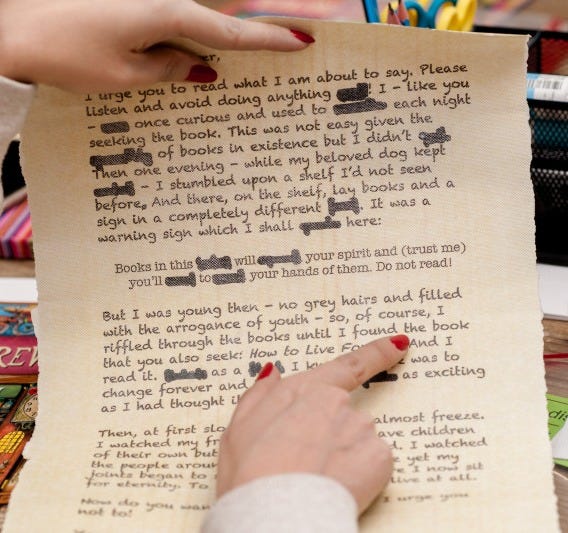 er,
I urge you to read what I am about to say. Please
listen and avoid doing anything ! I – like you
– once curious and used to each night
seeking the book. This was not easy given the
of books in existence but I didn't
Then one evening – while my beloved dog kept
– I stumbled upon a shelf I'd not seen
before. And there, on the shelf, lay books and a
sign in a completely different . It was a
warning sign which I shall here:
Books in this will your spirit and (trust me)
you'll to your hands of them. Do not read!
But I was young then – no grey hairs and filled
with the arrogance of youth – so, of course, I
riffled through the books until I found the book
that you also seek: How to Live Fo And I
read it. as a I k was to
change forever and as exciting
as I had thought i
Then, at first slo almost freeze.
I watched my fr ave children
of their own but d. I watched
the people aroun yet my
joints began to I now sit
for eternity. To live at all.
Now do you wan I urge you
not to!
REV